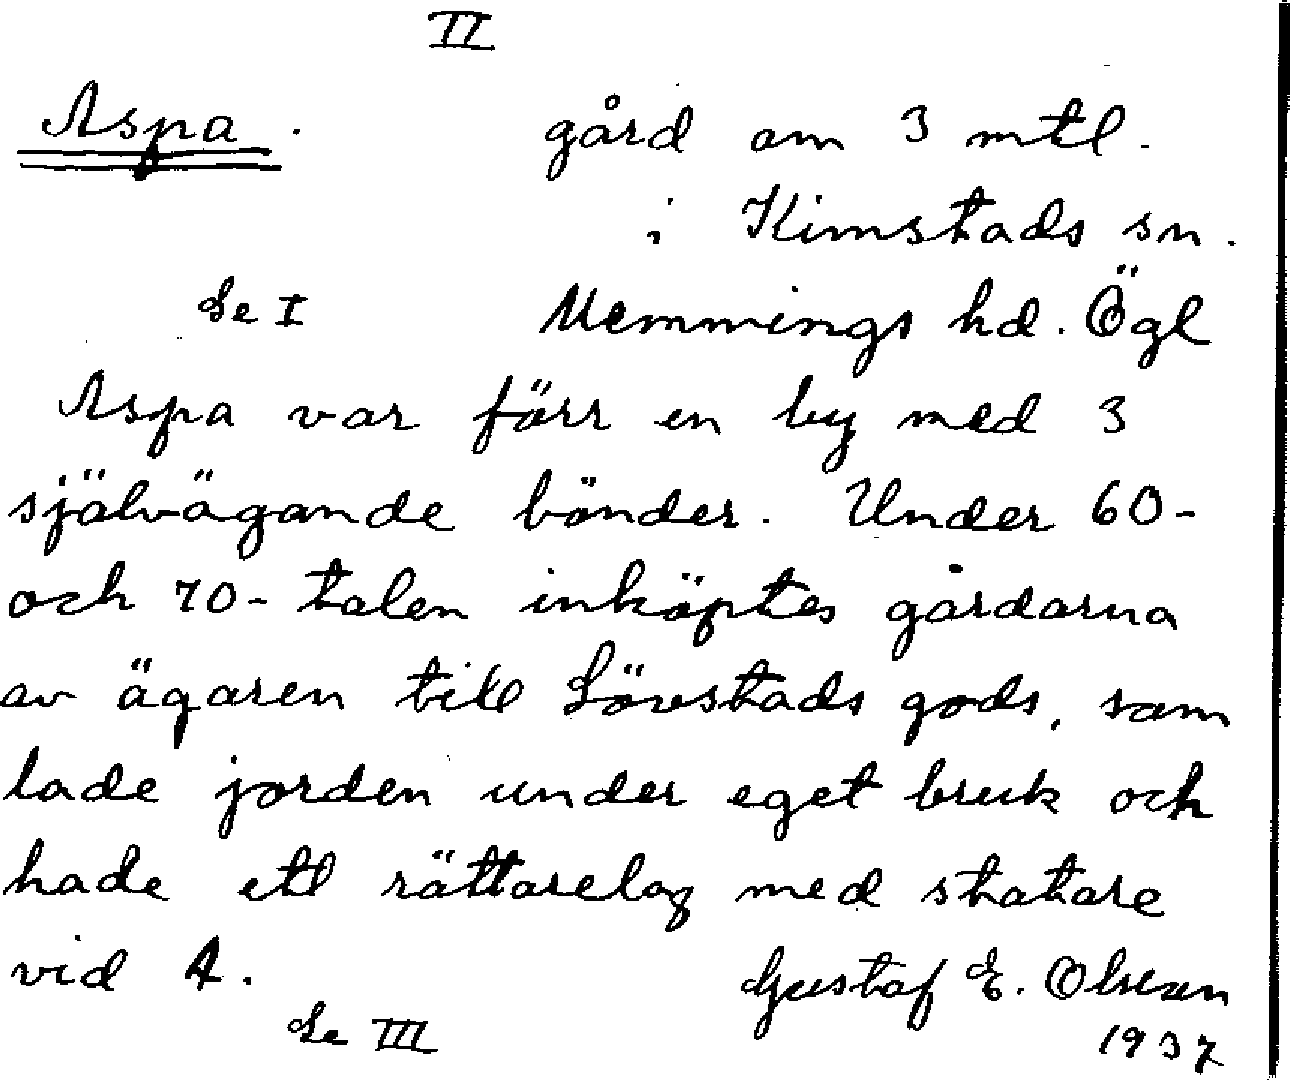 II
Aspa. gård om 3 mtl.
i Kimstads sn.
Se I Memmings hd. Ögl
Aspa var förr en by med 3
självägande bönder. Under 60-
och 70-talen inköptes gårdarna
av ägaren till Lövstads gods, som
lade jorden under eget bruk och
hade ett rättarelag med statare
vid A.
Gustaf E. Olsson
Se III
1937